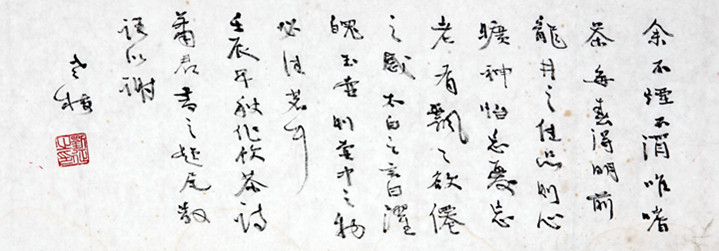 余不煙不酒唯嗜
茶每春得明前
龍井之佳品則心
曠神怡忘憂忘
老有飄々欲僊
之感太白之言濯
魄玉壺則壺中之物
必佳茗耳
壬辰年秋作飲茶詩
蕭君書之尾數
語以謝